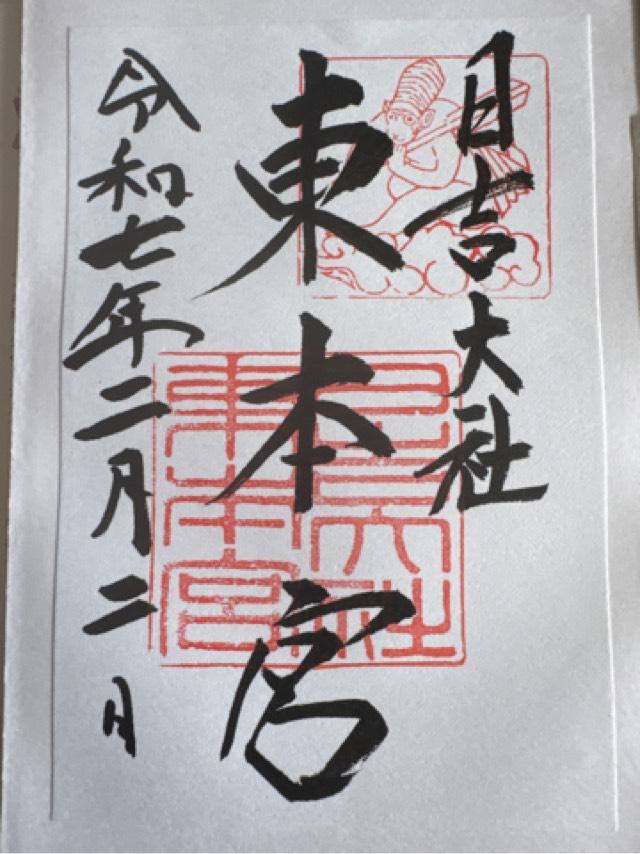 日吉大社
東本宮
令和七年二月二日
日吉大社
東本宮